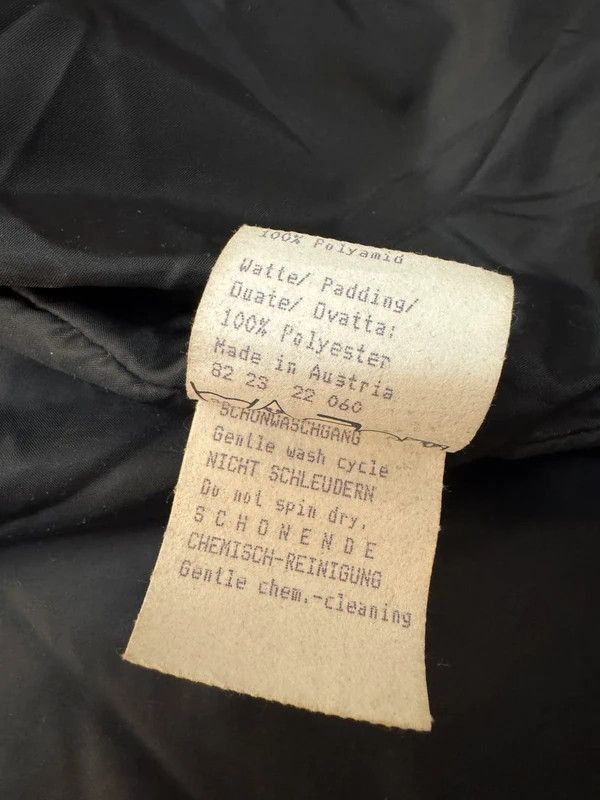 100% Polyamid
Watte/ Padding/
Ouate/ Ovatta:
100% Polyester
Made in Austria
82 23 22 060
SCHONWASCHGANG
Gentle wash cycle
NICHT SCHLEUDERN
Do not spin dry.
S C H O N E N D E
CHEMISCH-REINIGUNG
Gentle chem.-cleaning